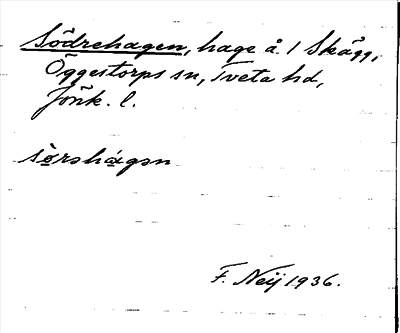 Södrehagen, hage å 1 Skägg,
Öggestorps sn, Tveta hd,
Jönk. l.
sörshágən
F. Neij 1936.